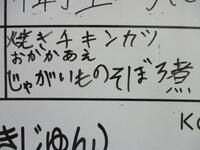 焼きチキンカツ
おかかあえ
じゃがいものそぼろ煮
きじゅん)
K